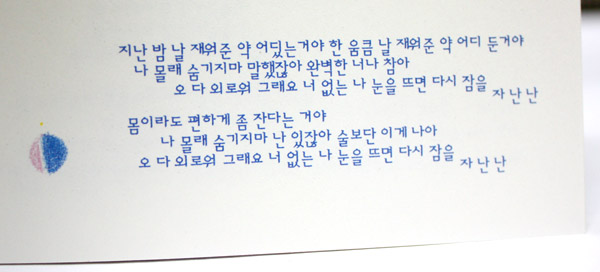 지난 밤 날 재워준 약 어딨는거야 한 움큼 날 재워준 약 어디 둔거야
나 몰래 숨기지마 말했잖아 완벽한 너나 참아
오 다 외로워 그래요 너 없는 나 눈을 뜨면 다시 잠을 자 난 난
몸이라도 편하게 좀 잔다는 거야
나 몰래 숨기지마 난 있잖아 술보단 이게 나아
오 다 외로워 그래요 너 없는 나 눈을 뜨면 다시 잠을 자 난 난